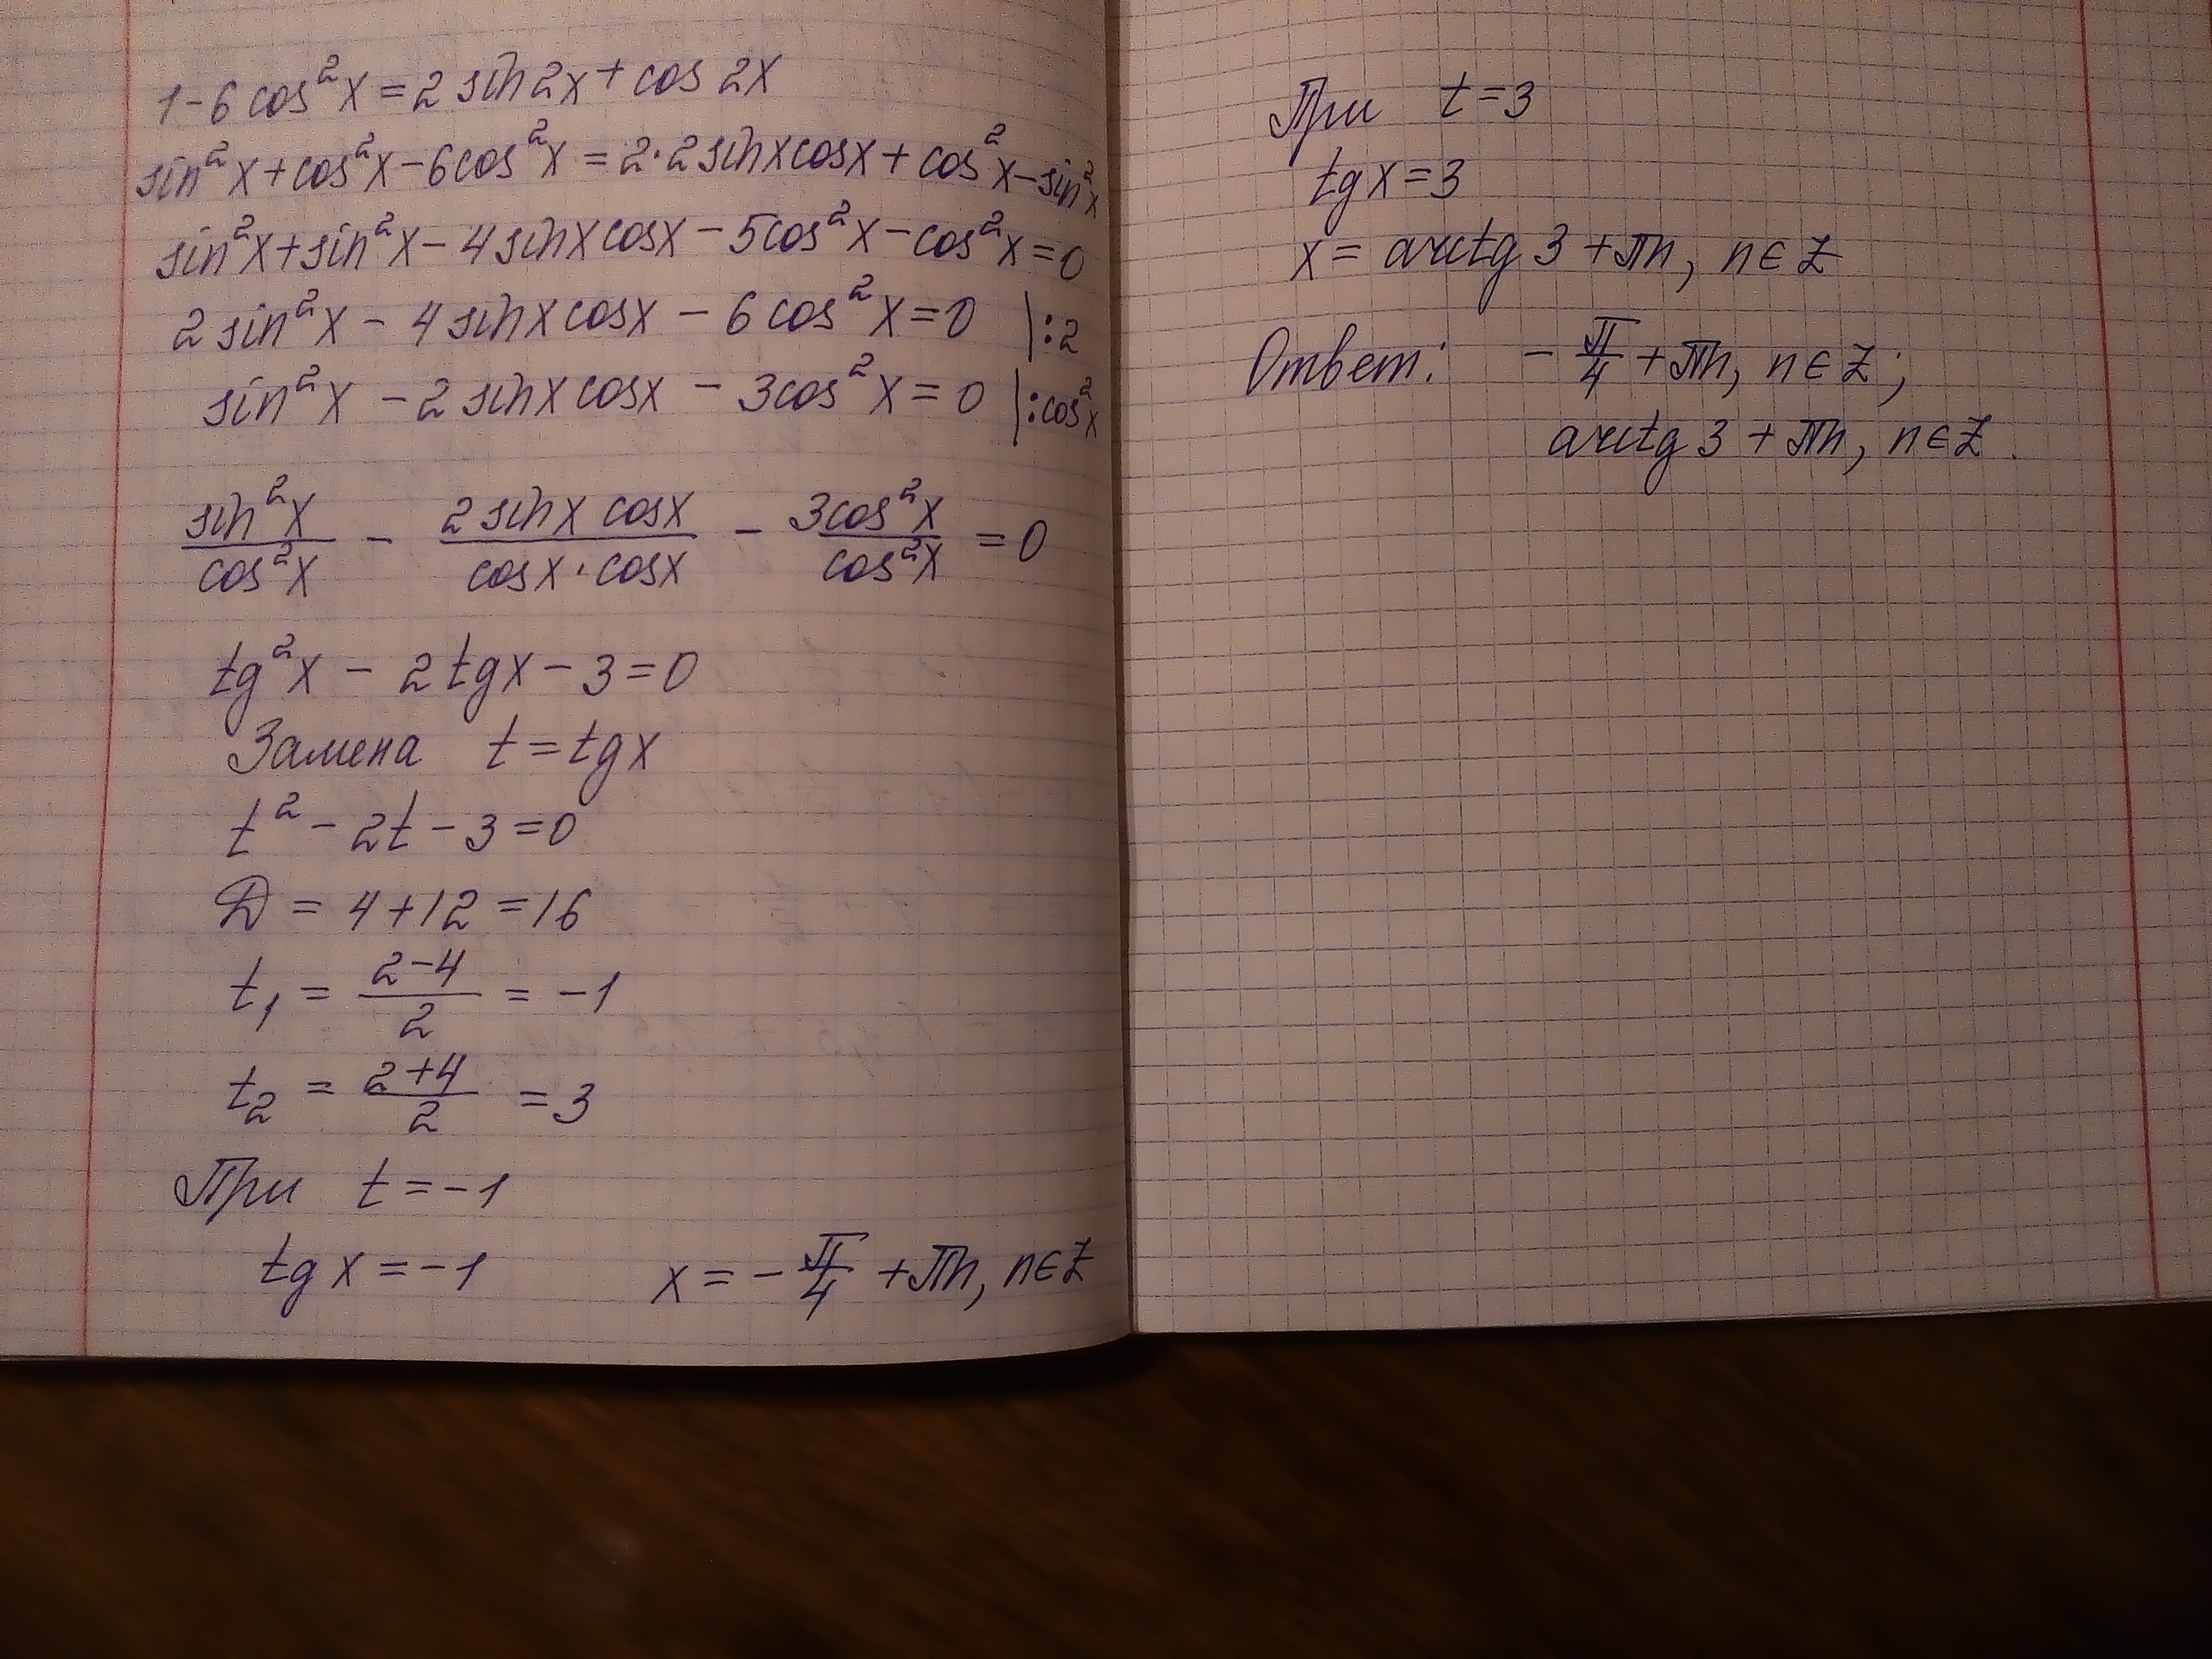 1-6cos²x=2sin2x+cos2x
sin²x+cos²x-6cos²x=2·2sinxcosx+cos²x-sin²x
sin²x+sin²x-4sinxcosx-5cos²x-cos²x=0
2sin²x-4sinxcosx-6cos²x=0 |:2
sin²x-2sinxcosx-3cos²x=0 |:cos²x
sin²x/cos²x - 2sinxcosx/cosx·cosx - 3cos²x/cos²x =0
tg²x-2tgx-3=0
Замена t=tgx
t²-2t-3=0
D=4+12=16
t₁=(2-4)/2=-1
t₂=(2+4)/2=3
При t=-1
tgx=-1 x=-π/4+πn, n∈Z
При t=3
tgx=3
x=arctg3+πn, n∈Z
Ответ: -π/4+πn, n∈Z;
arctg3+πn, n∈Z.